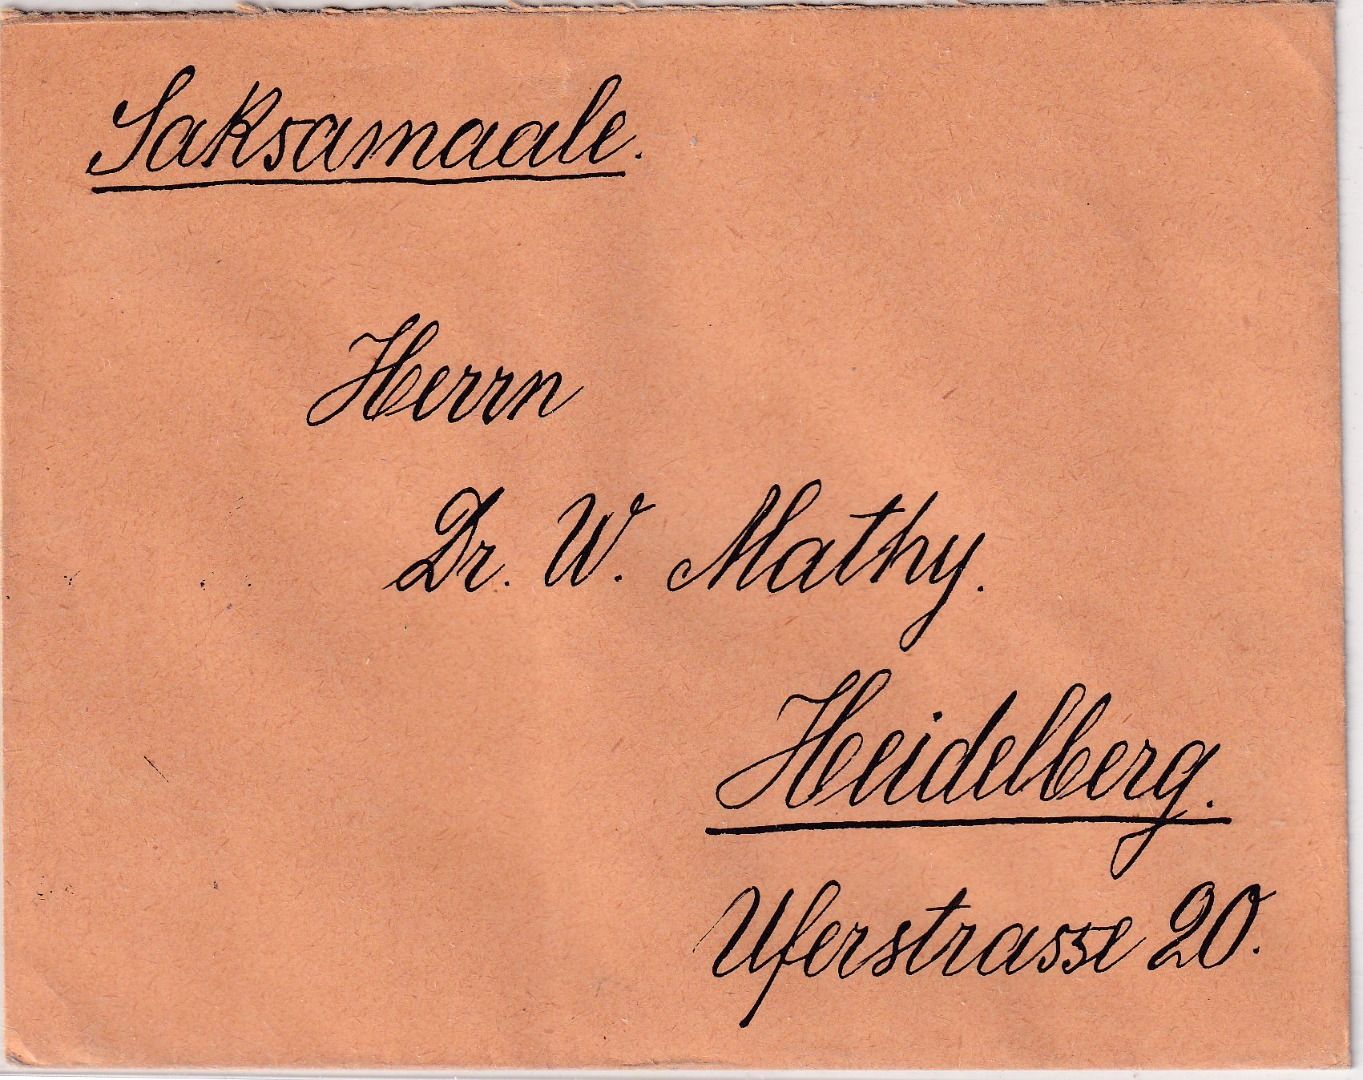 Saksamaale.
Herrn
Dr. W. Mathy.
Heidelberg.
Uferstrasse 20.